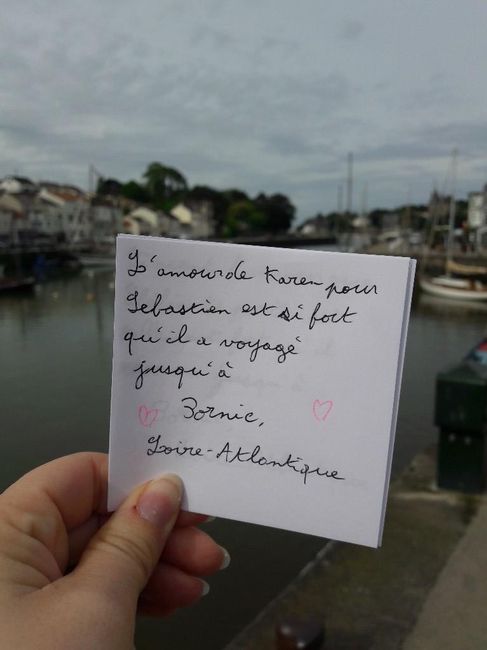 L'amour de Karen pour
Sebastien est si fort
qu'il a voyagé
jusqu'à
Pornic,
Loire-Atlantique